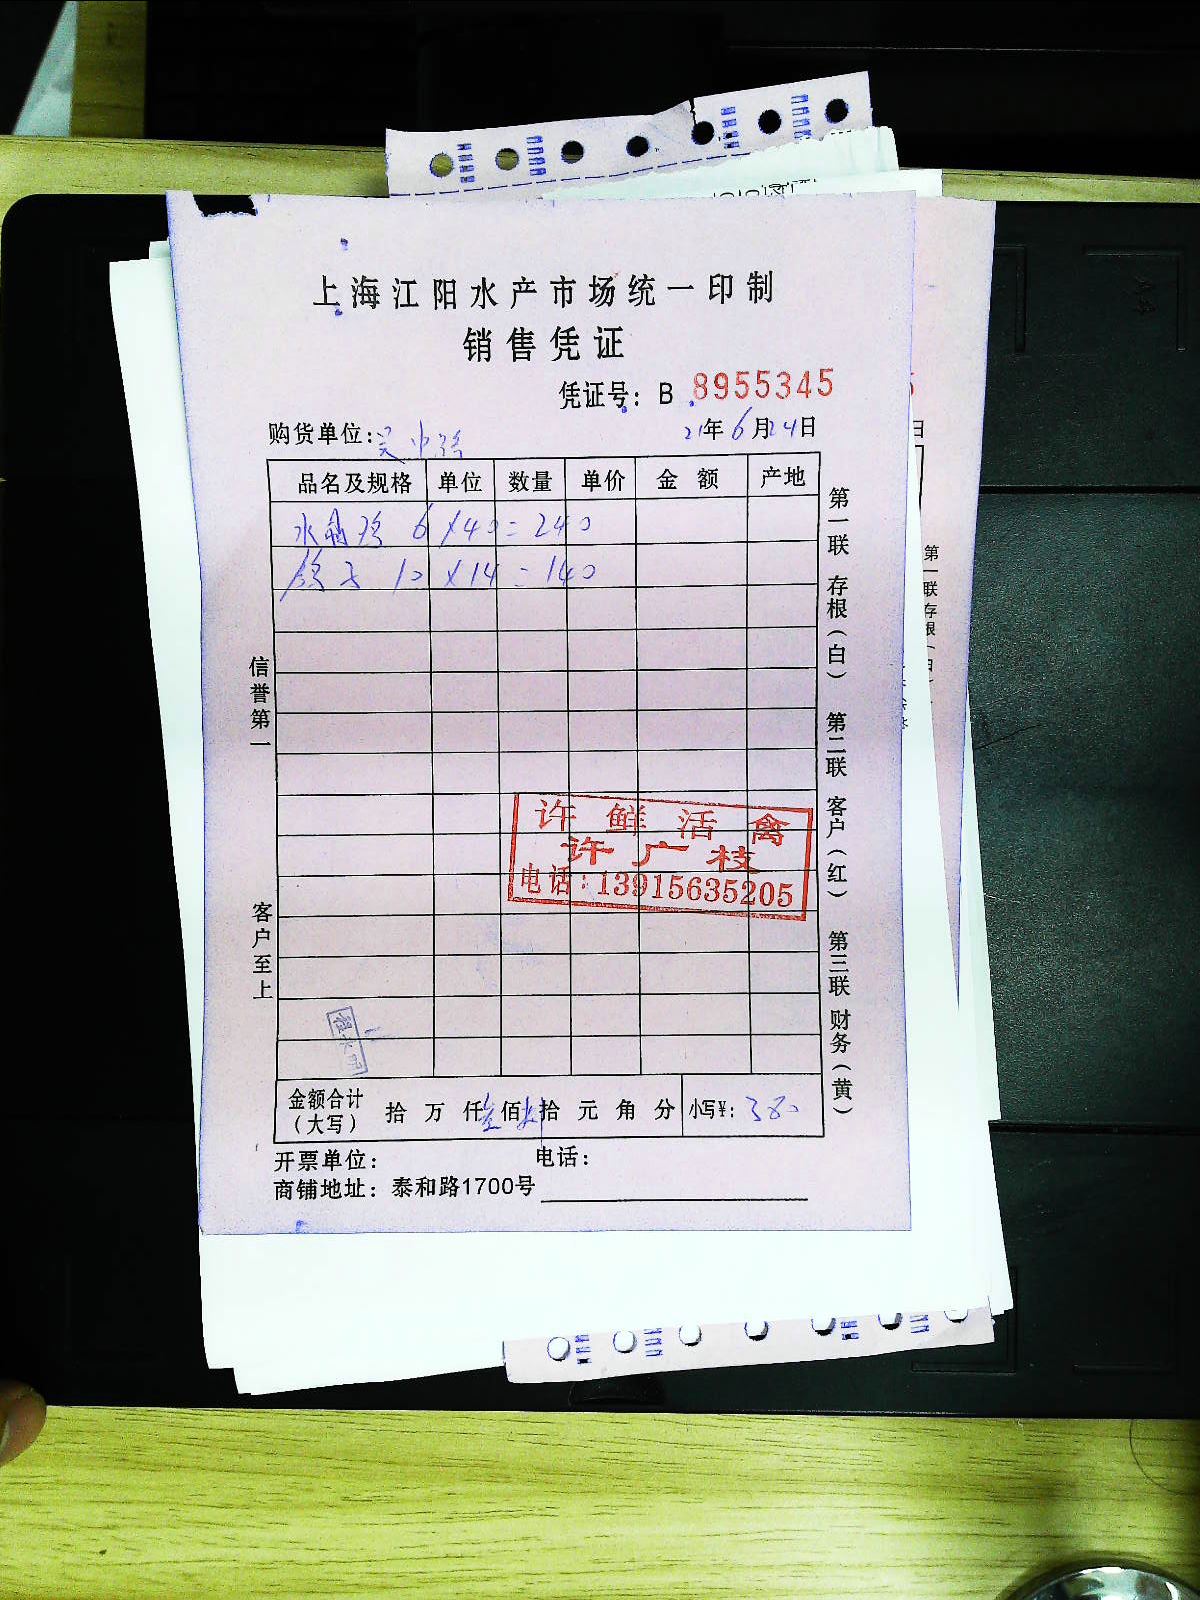 上海江阳水产市场统一印制
销售凭证
凭证号：B 8955345
购货单位：吴中路 21年6月24日
品名及规格 单位 数量 单价 金额 产地
水 6 ×40=240
鸽子 10 ×14=140
信誉第一 客户至上
第一联 存根（白） 第二联 客户（红） 第三联 财务（黄）
许鲜活禽
许广枝
电话：13915635205
程永明
金额合计（大写） 拾 万 仟 佰 拾 元 角 分 小写¥：380
开票单位： 电话：
商铺地址：泰和路1700号
日
第一联存根（白）